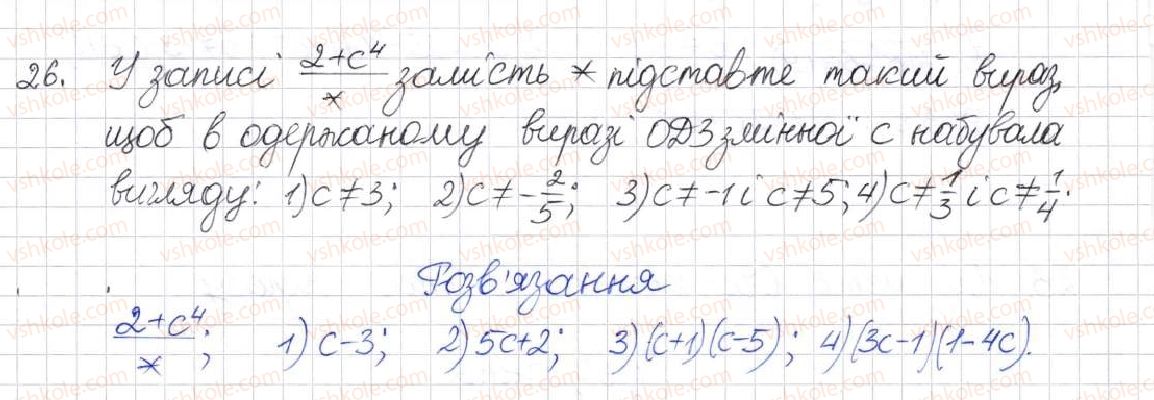 26. У записі (2+c⁴)/* замість * підставте такий вираз,
щоб в одержаному виразі ОДЗ змінної с набувала
вигляду: 1) c≠3; 2) c≠-2/5; 3) c≠-1 і c≠5; 4) c≠1/3 і c≠1/4.
Розв'язання
(2+c⁴)/*; 1) c-3; 2) 5c+2; 3) (c+1)(c-5); 4) (3c-1)(1-4c).
vshkole.com